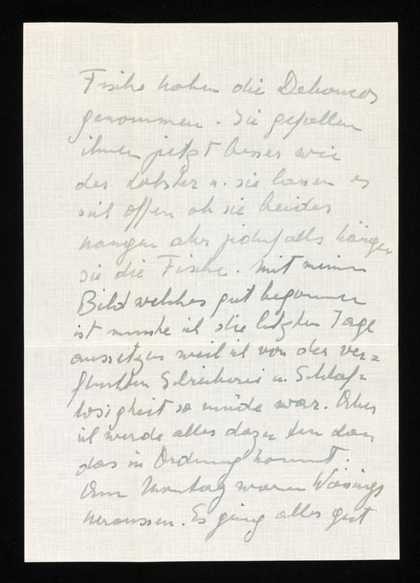 Fische haben die Dehoucos
genommen. Sie gefallen
ihnen jetzt besser wie
der lobster u. sie lassen es
mit offen ob sie beides
hängen aber jedenfalls hängen
sie die Fische. Mit meinem
Bild welches gut begonnen
ist musste ich die letzten Tage
aussetzen weil ich von der ver=
fluchten Schreiberei u. Schlaf=
losigkeit so müde war. Aber
ich werde alles dazu tun dass
das in Ordnung kommt.
Am Montag waren
heraussen. Es ging alles gut